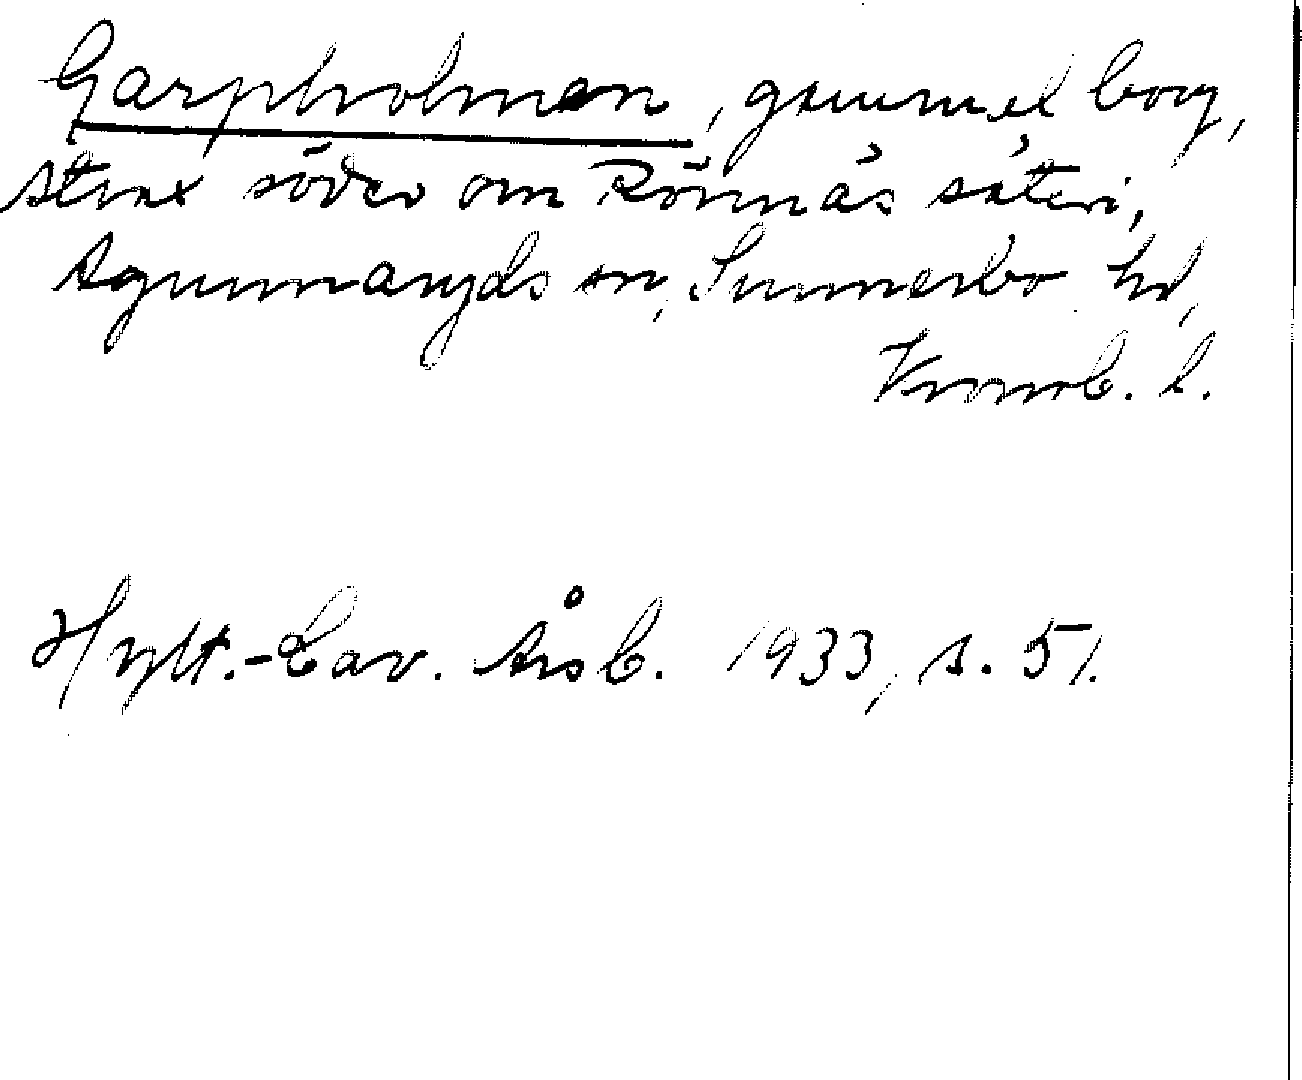 Garpholmen, gammel borg,
strax söder om Rönnäs säteri,
Agunnaryds sn, Sunnerbo hd,
Kronob. l.
Hylt.-Cav. Årsb. 1933, s. 51.